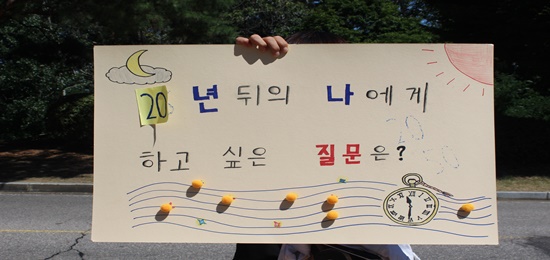 20년 뒤의 나에게
하고 싶은 질문은?